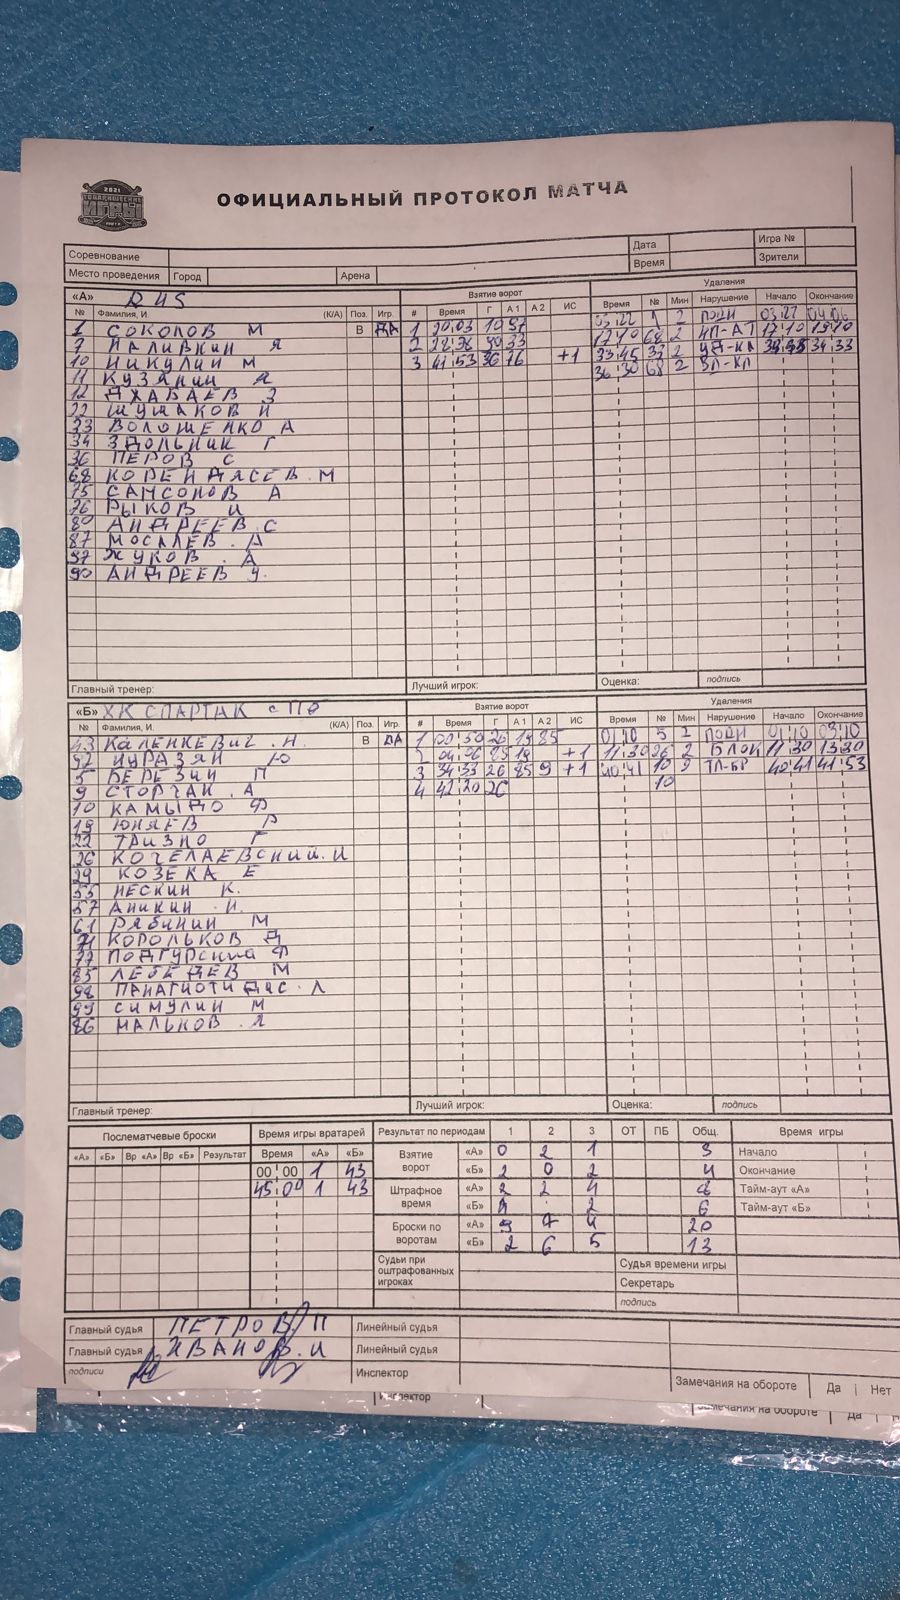 2021
ТОВАРИЩЕСКИЕ
ИГРЫ
ОФИЦИАЛЬНЫЙ ПРОТОКОЛ МАТЧА
Соревнование Дата Игра №
Место проведения Город Арена Время Зрители
«А» Взятие ворот Удаления
№ Фамилия, И. (К/А) Поз. Игр. # Время Г А 1 А 2 ИС Время № Мин Нарушение Начало Окончание
1 СОКОЛОВ М В ДА 1 20 03 10 97 03 22 1 2 03 22 04 06
7 НАЛИВКИН Я 2 33 17 10 68 2 НП-АТ 17 10 19 10
10 НИКУЛИН М 3 41 53 36 76 +1 33 45 33 2 УД-КЛ 34 33
11 КУЗЯНИН Я 36 30 68 2 ЗП-КЛ
12 ДХАБАЕВ З
22 ШУМАКОВ И
33 ВОЛОШЕНКО А
34 ЗДОЛЬНИК Г
36 ПЕРОВ С
68 КОРЕНДЯСЕВ. М
75 САМСОНОВ А
76 РЫКОВ И
80 АНДРЕЕВ. С
87 МОСАЛЕВ. А
97 ЖУКОВ . А
90 АНДРЕЕВ У.
Главный тренер: Лучший игрок: Оценка: подпись
«Б» ХК СПАРТАК СПб Взятие ворот Удаления
№ Фамилия, И. (К/А) Поз. Игр. # Время Г А 1 А 2 ИС Время № Мин Нарушение Начало Окончание
43 КАЛЕНКЕВИЧ . Н. В ДА 1 00 50 26 19 85 01 10 5 2 01 10 03 10
97 НУРАЗЯН Ю 2 04 06 19 +1 11 30 26 2 БЛОК 11 30 13 30
5 БЕРЕЗИН П 3 34 33 26 85 9 +1 40 41 10 2 40 41 41 53
9 СТОРЧАК . А 4 42 20 26 10
10 КАМЫДО Ф
19 ЮНЯЕВ Р
22 ТРИЗНО Г
26 КОЧЕЛАЕВСКИЙ. И
29 КОЗЕКА Е
55 НЕСКИН К.
57 АНИКИН . Н.
61 РЯБИНИН М
71 КОРОЛЬКОВ Д
77 ПОДГУРСКИЙ Ф
85 ЛЕБЕДЕВ М
98 ПАНАГИОТИДИС . Л
99 СИМУЛИН М
86 МАЛЬКОВ . Я
Главный тренер: Лучший игрок: Оценка: подпись
Послематчевые броски Время игры вратарей Результат по периодам 1 2 3 ОТ ПБ Общ. Время игры
«А» «Б» Вр «А» Вр «Б» Результат Время «А» «Б» Взятие ворот «А» 0 2 1 3 Начало
00 00 1 43 «Б» 2 0 2 4 Окончание
45 00 1 43 Штрафное время «А» 2 2 4 8 Тайм-аут «А»
«Б» 2 6 Тайм-аут «Б»
Броски по воротам «А» 9 7 4 20
«Б» 2 6 5 13
Судьи при оштрафованных игроках Судья времени игры
Секретарь
подпись
Главный судья ПЕТРОВ П Линейный судья
Главный судья ИВАНОВ. И Линейный судья
подписи Инспектор Замечания на обороте Да Нет
Инспектор Замечания на обороте Да